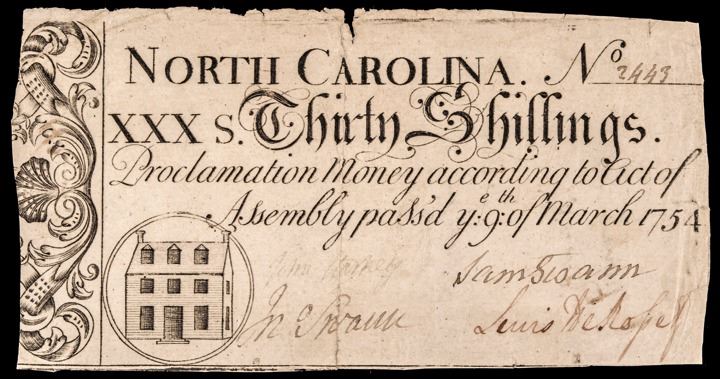 NORTH CAROLINA. No 2443
XXX S. Thirty Shillings.
Proclamation Money according to Act of
Assembly pass'd ye: 9th: of March 1754
John Starkey
Sam Swann
Jno Swann
Lewis DeRosset